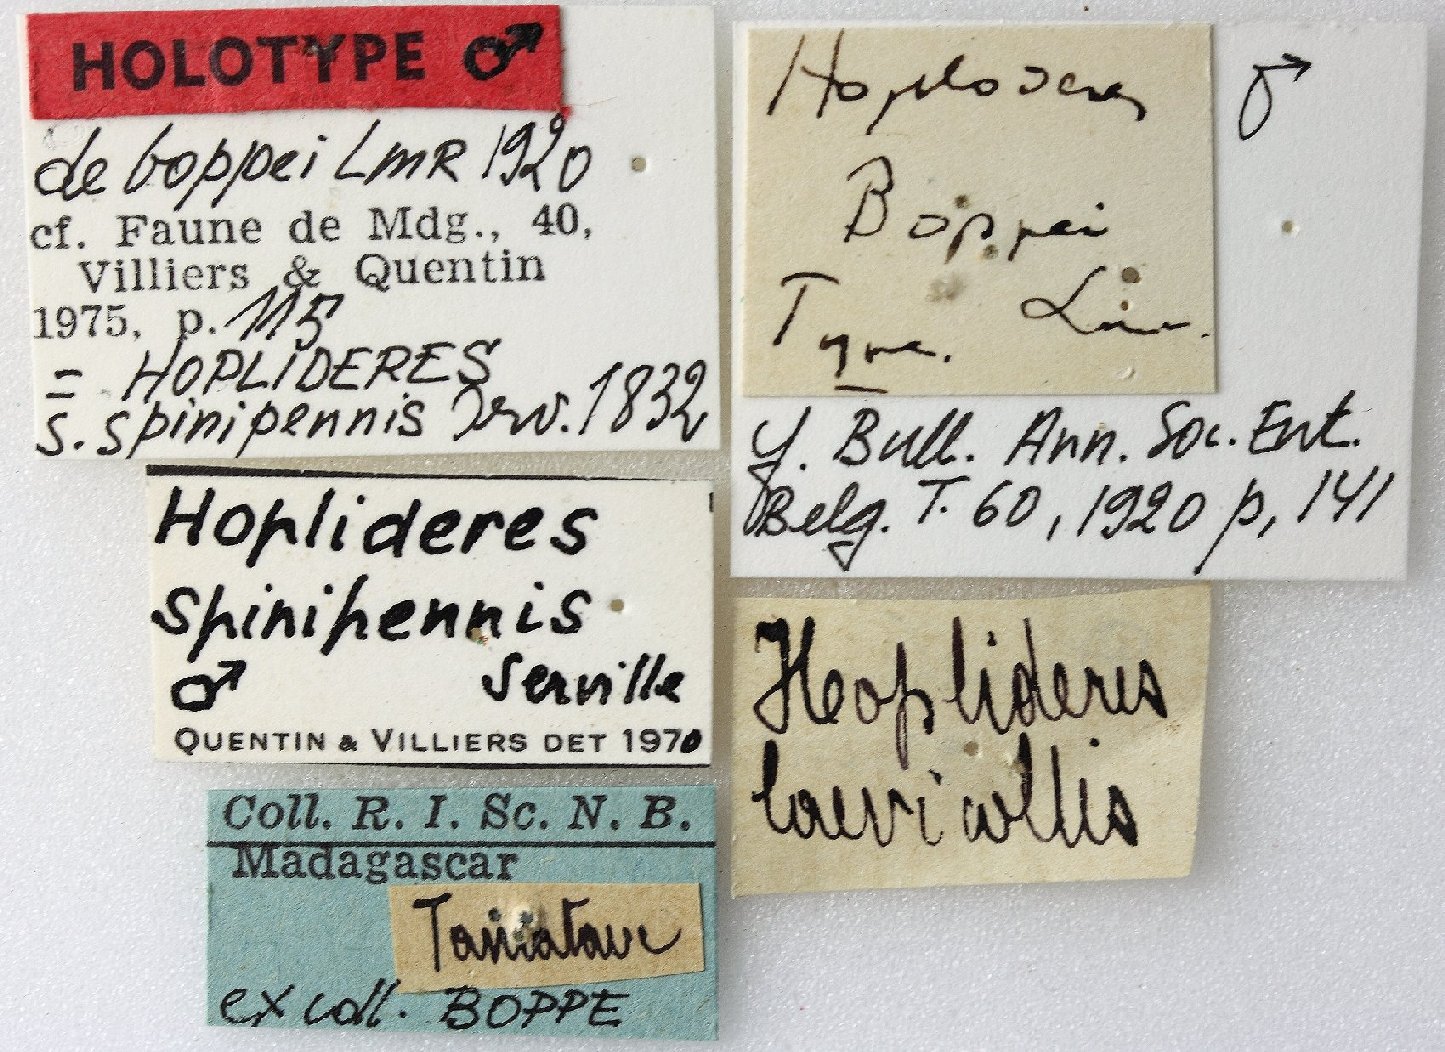 HOLOTYPE ♂
de boppei LmR 1920
cf. Faune de Mdg., 40,
Villiers & Quentin
1975, p. 115
= HOPLIDERES
s. spinipennis Serv. 1832
Hoplideres
spinipennis
♂ Serville
QUENTIN & VILLIERS DET 1970
Coll. R. I. Sc. N. B.
Madagascar
Tamatave
ex coll. BOPPE
♂
Boppei
Type. Lm.
cf. Bull. Ann. Soc. Ent.
Belg. T. 60, 1920 p. 141
Hoplideres
laevicollis